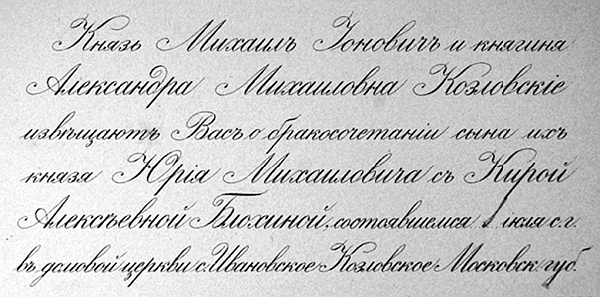 Князь Михаилъ Іоновичъ и княгиня
Александра Михаиловна Козловскіе
извѣщаютъ Васъ о бракосочетаніи сына ихъ
князя Юрія Михаиловича съ Кирой
Алексѣевной Блохиной, состоявшемся іюля с.г.
въ домовой церкви с. Ивановское Козловское Московск. губ.